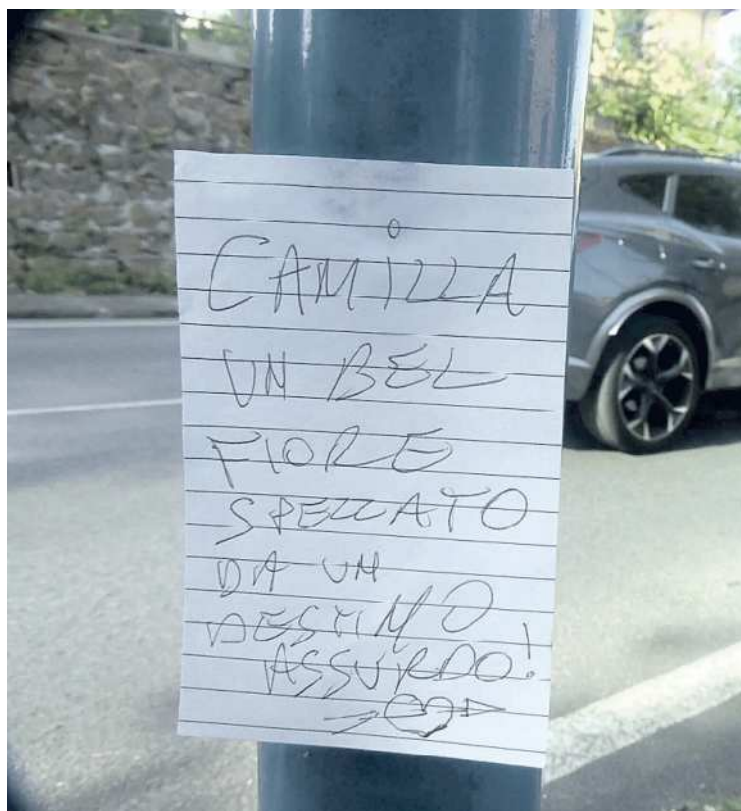 CAMILLA
UN BEL
FIORE
SPEZZATO
DA UN
DESTINO
ASSURDO!